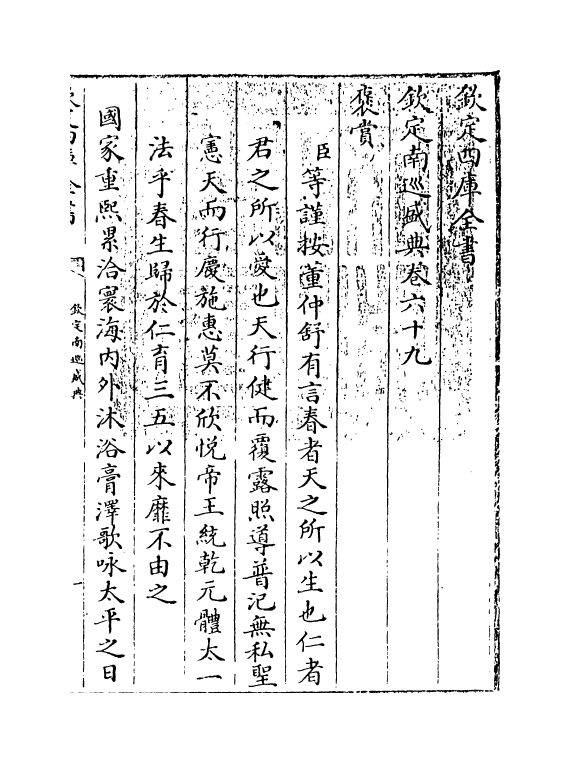 欽定四庫全書
欽定南巡盛典卷六十九
褒賞
臣等謹按董仲舒有言春者天之所以生也仁者
君之所以愛也天行健而覆露照導普汜無私聖
憲天而行慶施惠莫不欣悅帝王統乾元體太一
法乎春生歸於仁育三五以來靡不由之
國家重熙累洽寰海內外沐浴膏澤歌咏太平之日
欽定四庫全書
欽定南巡盛典
一